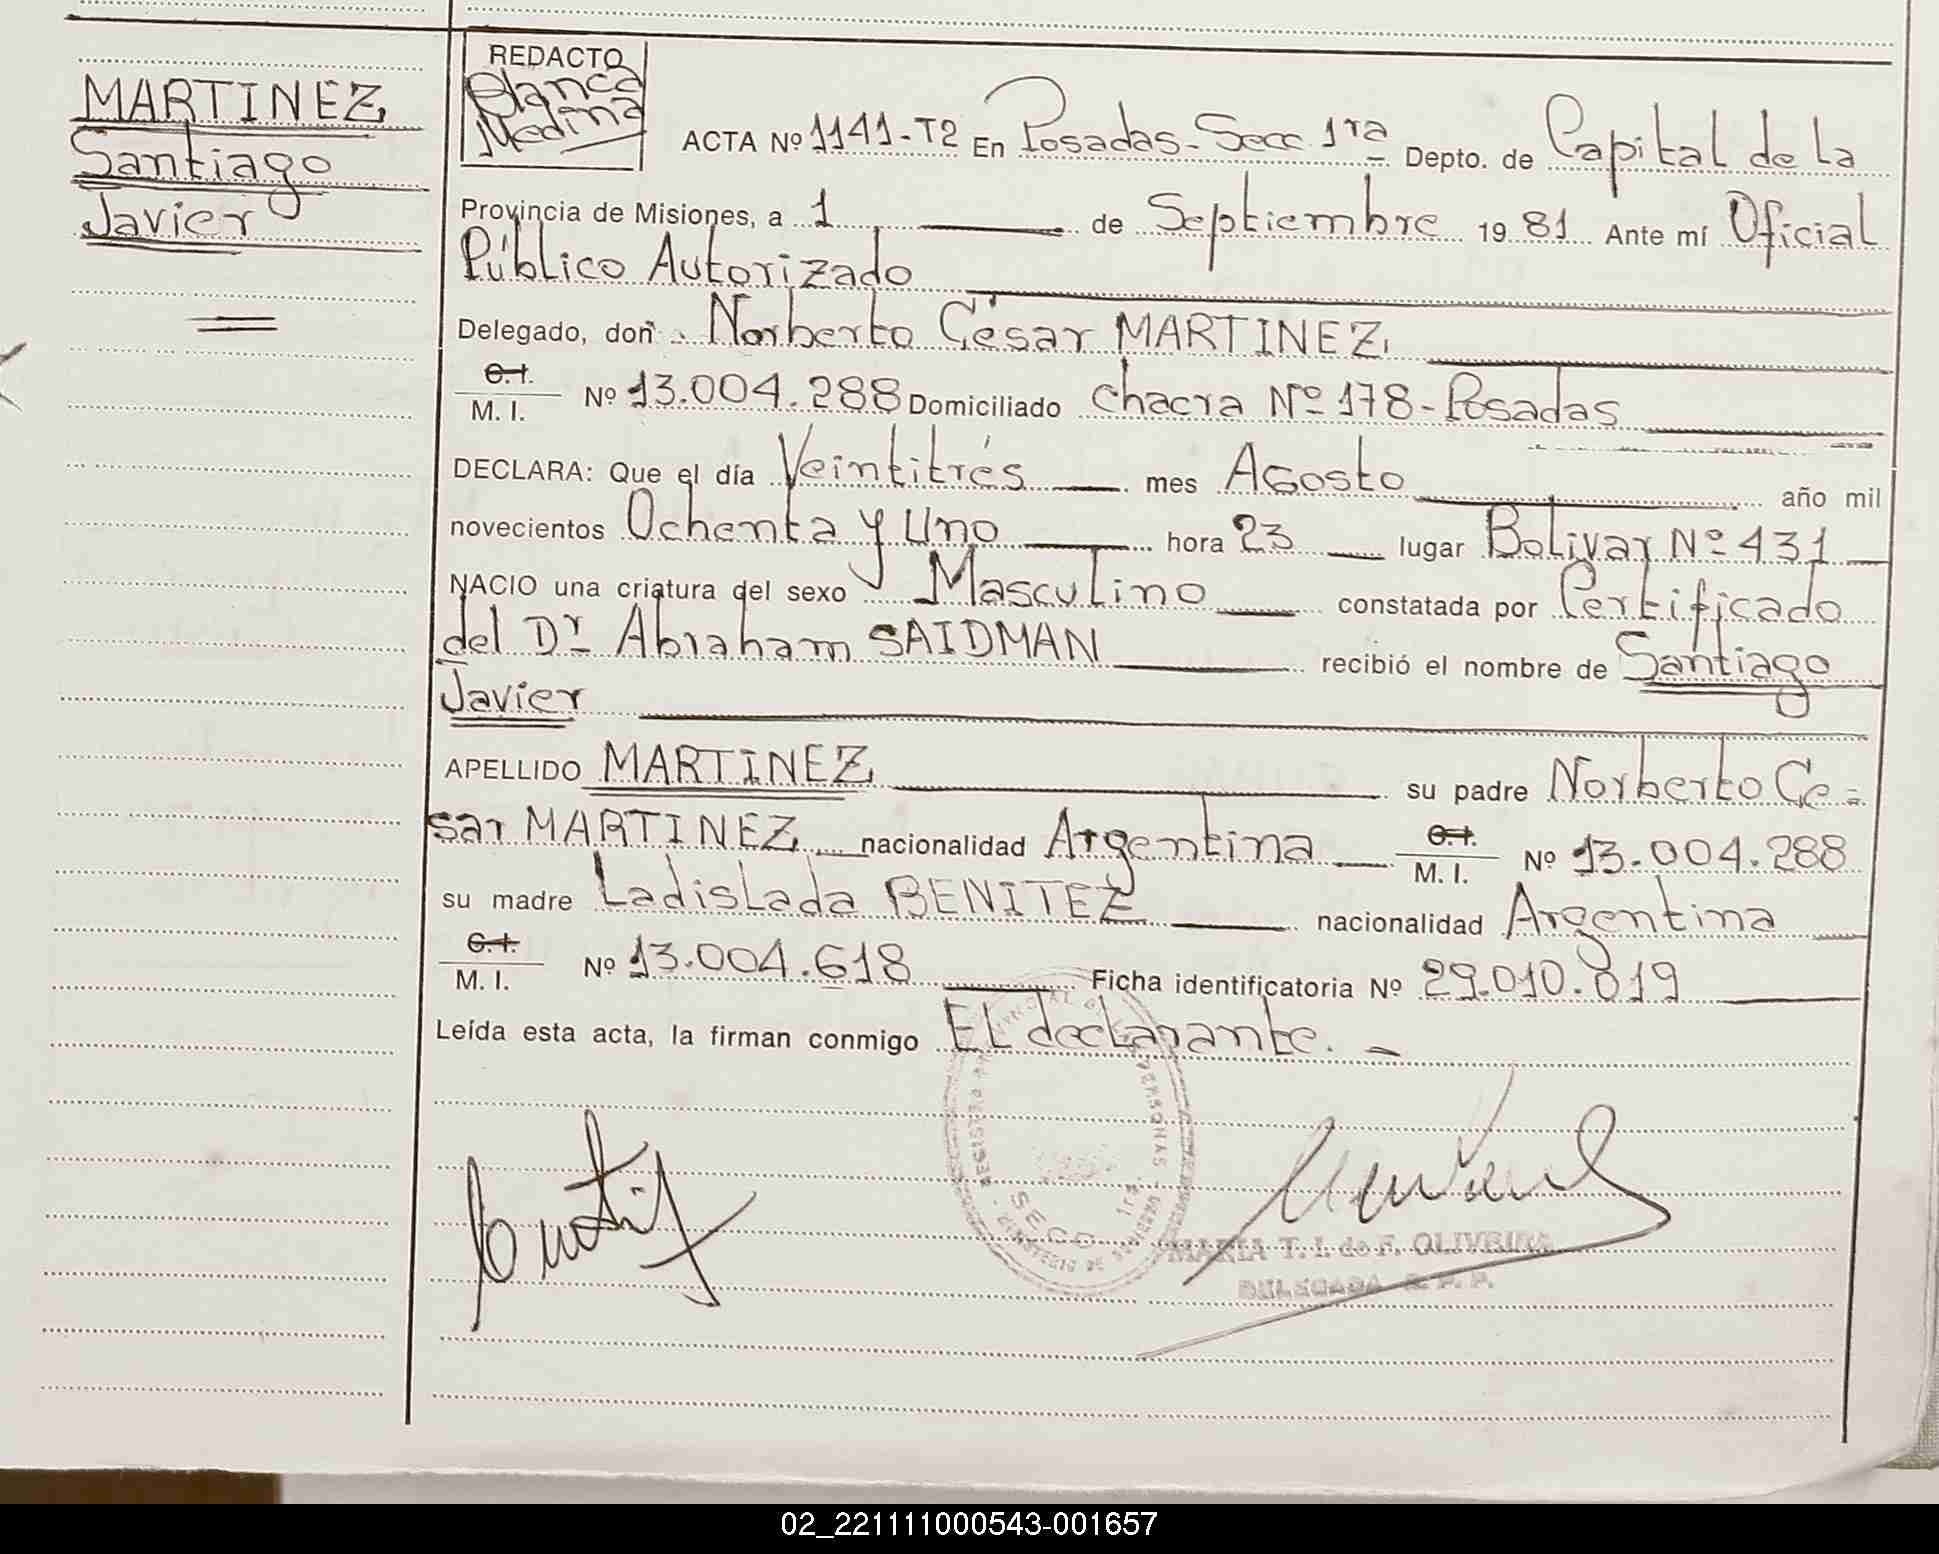 MARTINEZ
Santiago
Javier
REDACTO
Blanca
Medina
ACTA Nº 1141-T2 En Posadas-Secc. 1ra Depto. de Capital de la
Provincia de Misiones, a 1 de Septiembre 19 81 Ante mí Oficial
Público Autorizado
Delegado, don Norberto César MARTINEZ
C.I.
M. I. Nº 13.004.288 Domiciliado chacra Nº 178-Posadas
DECLARA: Que el día Veintitrés mes Agosto año mil
novecientos Ochenta y Uno hora 23 lugar Bolivar Nº 431
NACIO una criatura del sexo Masculino constatada por Certificado
del Dr Abraham SAIDMAN recibió el nombre de Santiago
Javier
APELLIDO MARTINEZ su padre Norberto Ce=
sar MARTINEZ nacionalidad Argentina C.I.
M. I. Nº 13.004.288
su madre Ladislada BENITEZ nacionalidad Argentina
C.I.
M. I. Nº 13.004.618 Ficha identificatoria Nº 29.010.819
Leída esta acta, la firman conmigo El declarante.-
SECC. 1ra.
MARIA T. I. de F. OLIVEIRA
DELEGADA R. P. P.
02_221111000543-001657